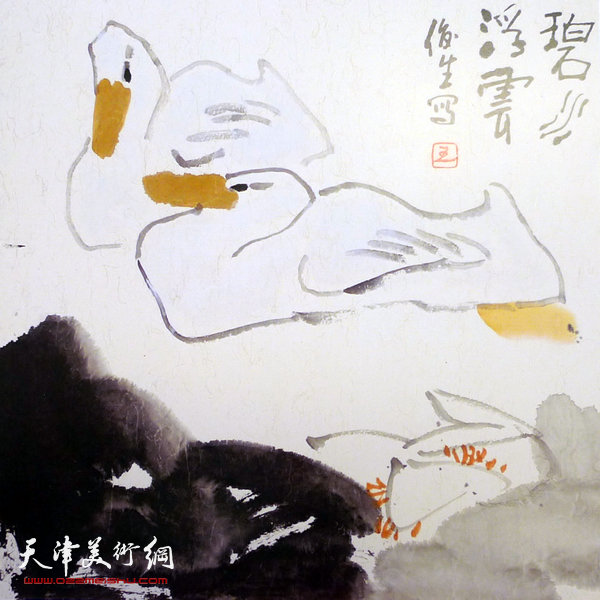 碧水
浮雲
俊生写
王
天津美術網
www.022meishu.com